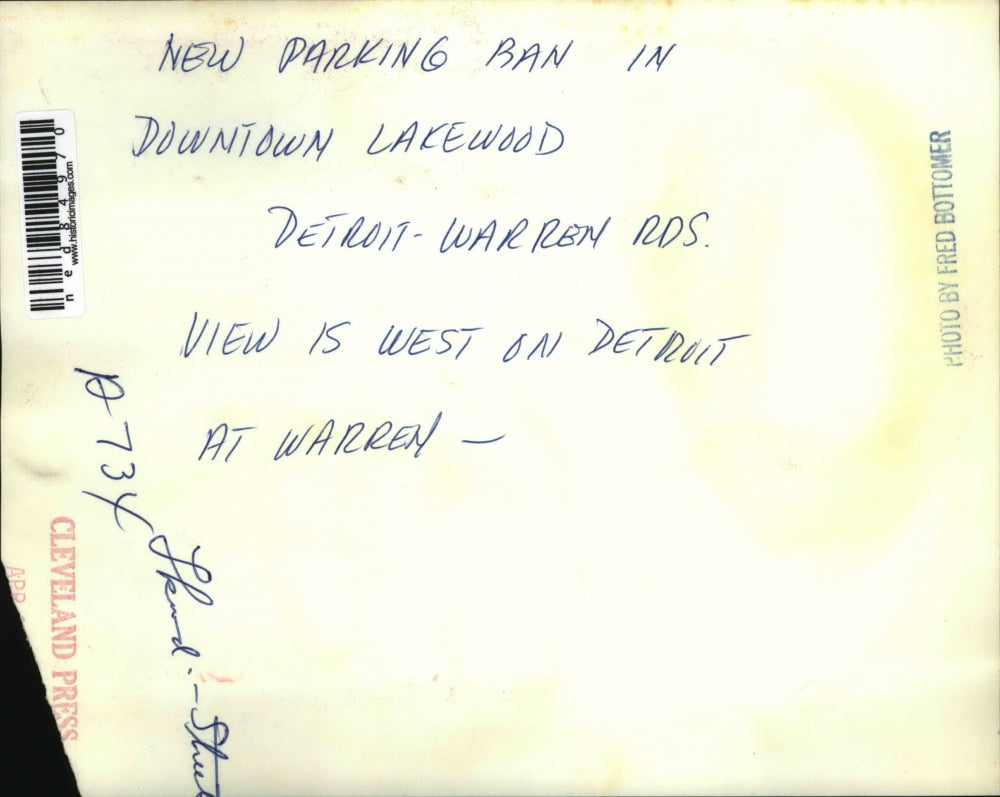 NEW PARKING BAN IN
DOWNTOWN LAKEWOOD
DETROIT-WARREN RDS.
VIEW IS WEST ON DETROIT
AT WARREN —
PHOTO BY FRED BOTTOMER
ned84970
www.historicimages.com
Lkwd.-Street
CLEVELAND PRESS
APR